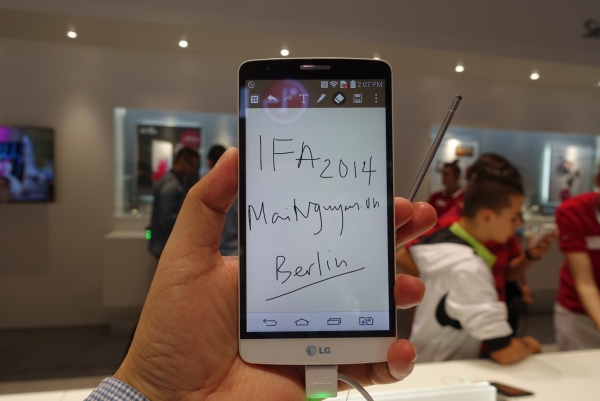 2:07 PM
T
IFA 2014
MaiNguyen.vn
Berlin
LG